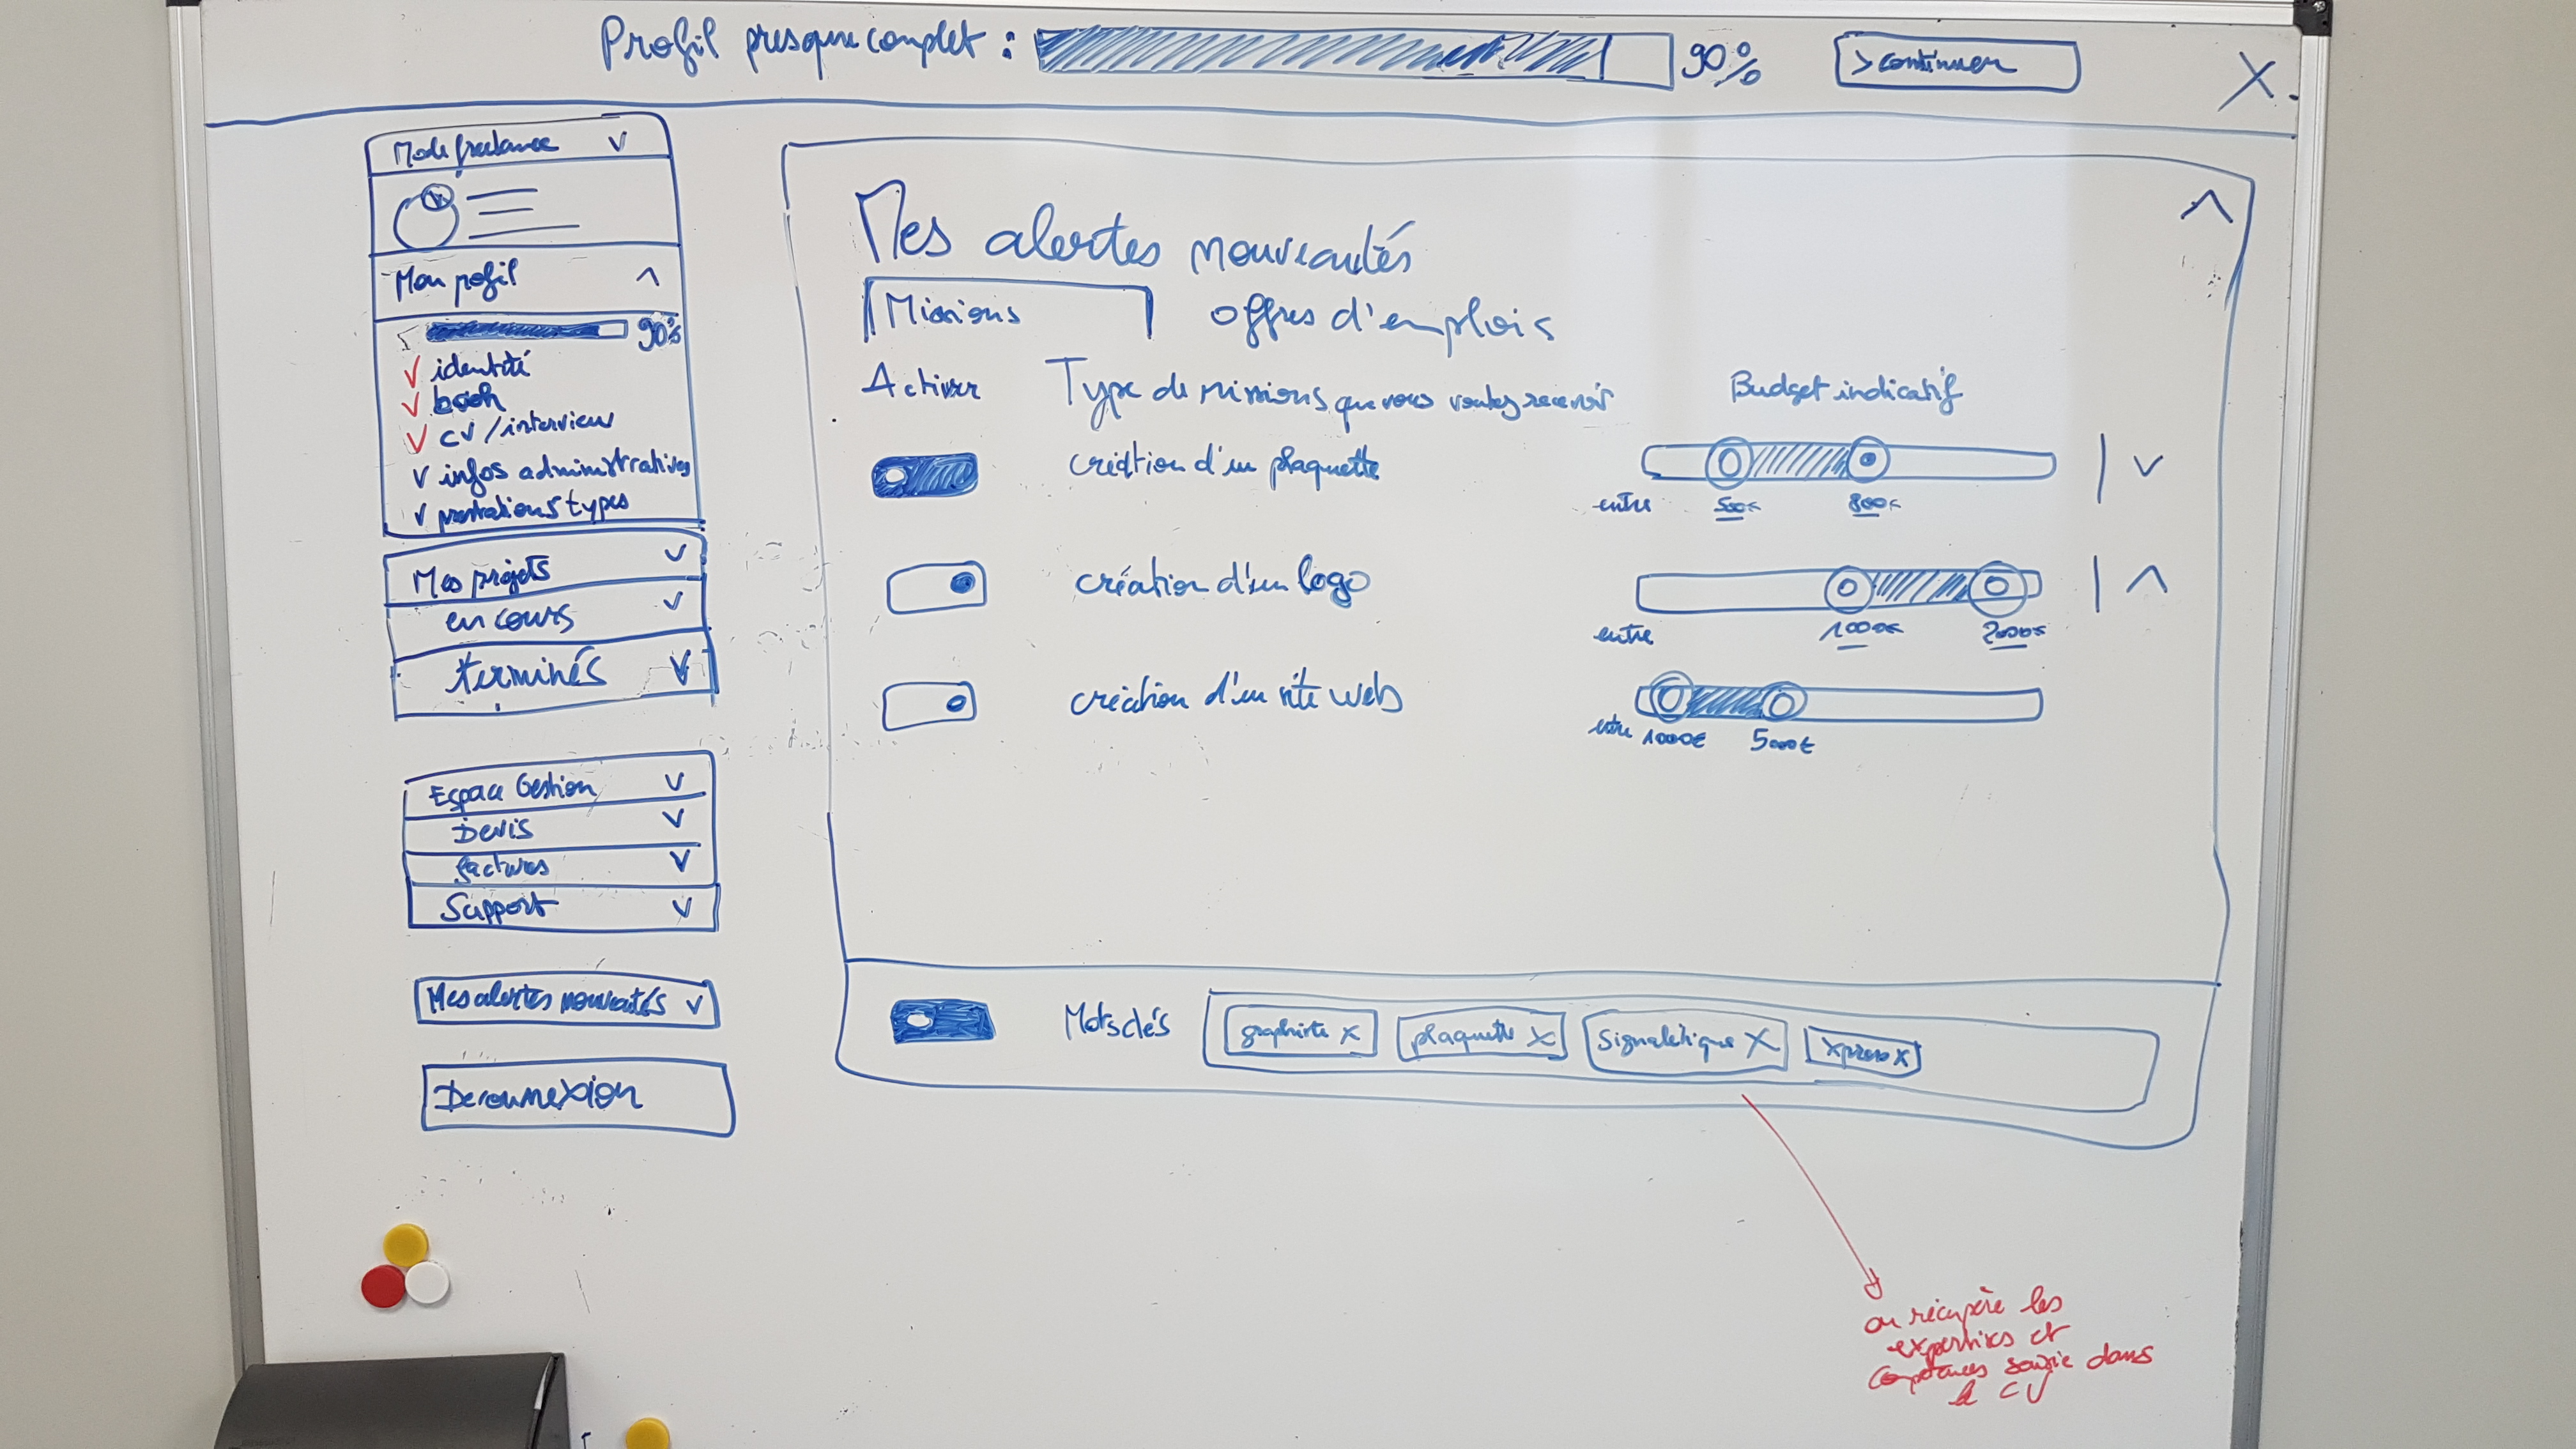 Profil presque complet : 90% > continuer X
Mode freelance V
Mon pofil ^
90%
V identité
V book
V CV / interview
V infos administratives
V prestations types
Mes projets V
en cours V
terminés V
Espace Gestion V
Devis V
factures V
Support V
Mes alertes nouveautés V
Deconnexion
Mes alertes nouveautés ^
Missions offres d'emplois
Activer Type de missions que vous voulez recevoir Budget indicatif
création d'un plaquette | V
entre 500€ 800€
création d'un logo | ^
entre 1000€ 2000€
création d'un site web
entre 1000€ 5000€
Mots clés graphiste X plaquette X Signalétique X Xpress X
on récupère les
expertises et
compétences saisie dans
le CV